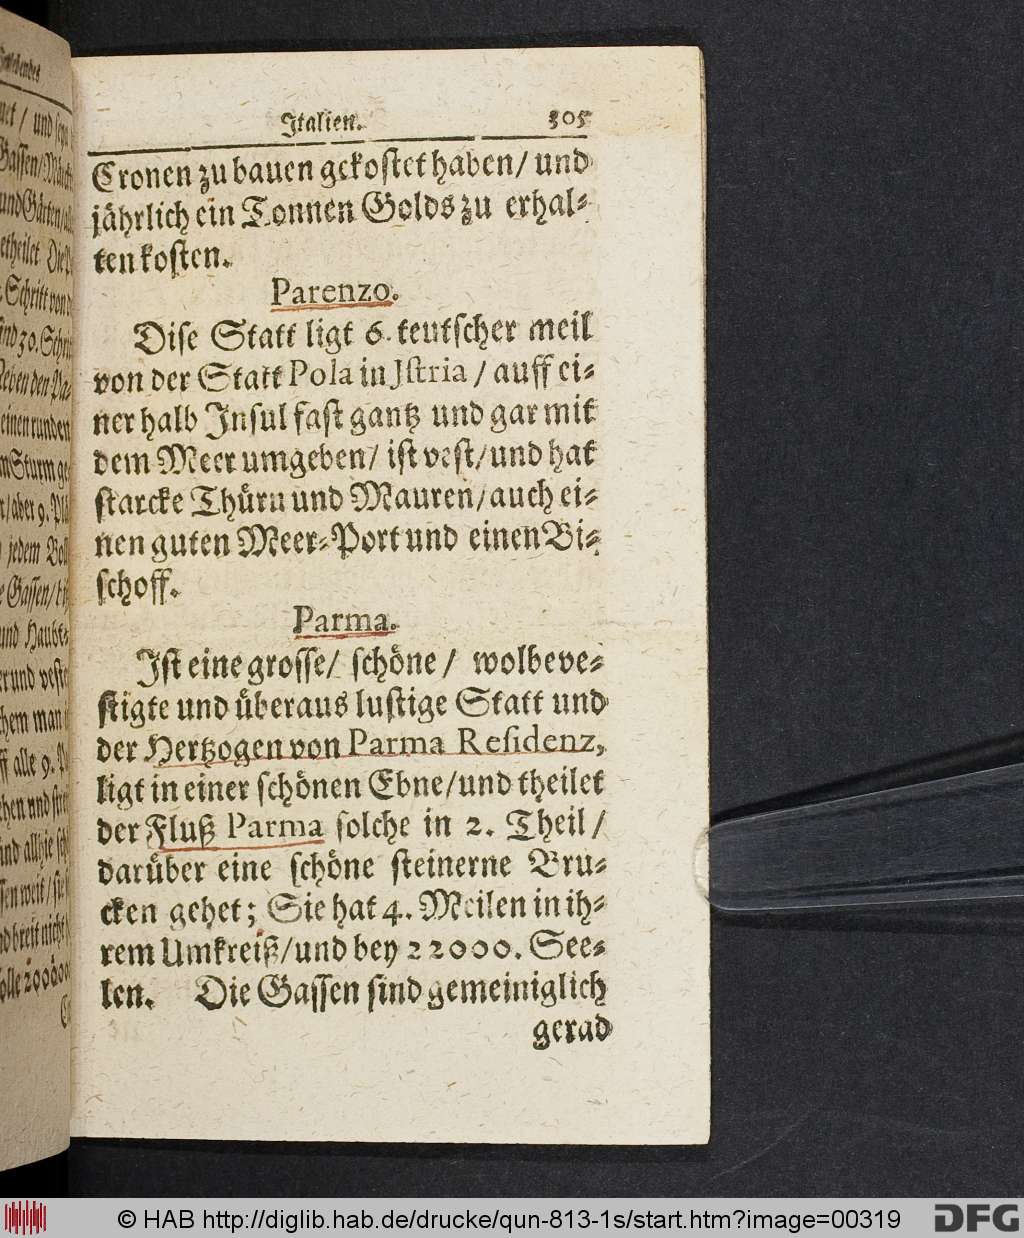 Italien. 305
Cronen zu bauen gekostet haben/ und
jährlich ein Tonnen Golds zu erhal-
ten kosten.
Parenzo.
Dise Statt ligt 6. teutscher meil
von der Statt Pola in Jstria / auff ei-
ner halb Insul fast gantz und gar mit
dem Meer umgeben/ ist vest/ und hat
starcke Thürn und Mauren/ auch ei-
nen guten Meer-Port und einen Bi-
schoff.
Parma.
Ist eine grosse/ schöne / wolbeve-
stigte und überaus lustige Statt und
der Hertzogen von Parma Residenz,
ligt in einer schönen Ebne/ und theilet
der Fluß Parma solche in 2. Theil /
darüber eine schöne steinerne Bru-
cken gehet; Sie hat 4. Meilen in ih-
rem Umkreiß/ und bey 22000. See-
len. Die Gassen sind gemeiniglich
gerad
© HAB http://diglib.hab.de/drucke/qun-813-1s/start.htm?image=00319
DFG